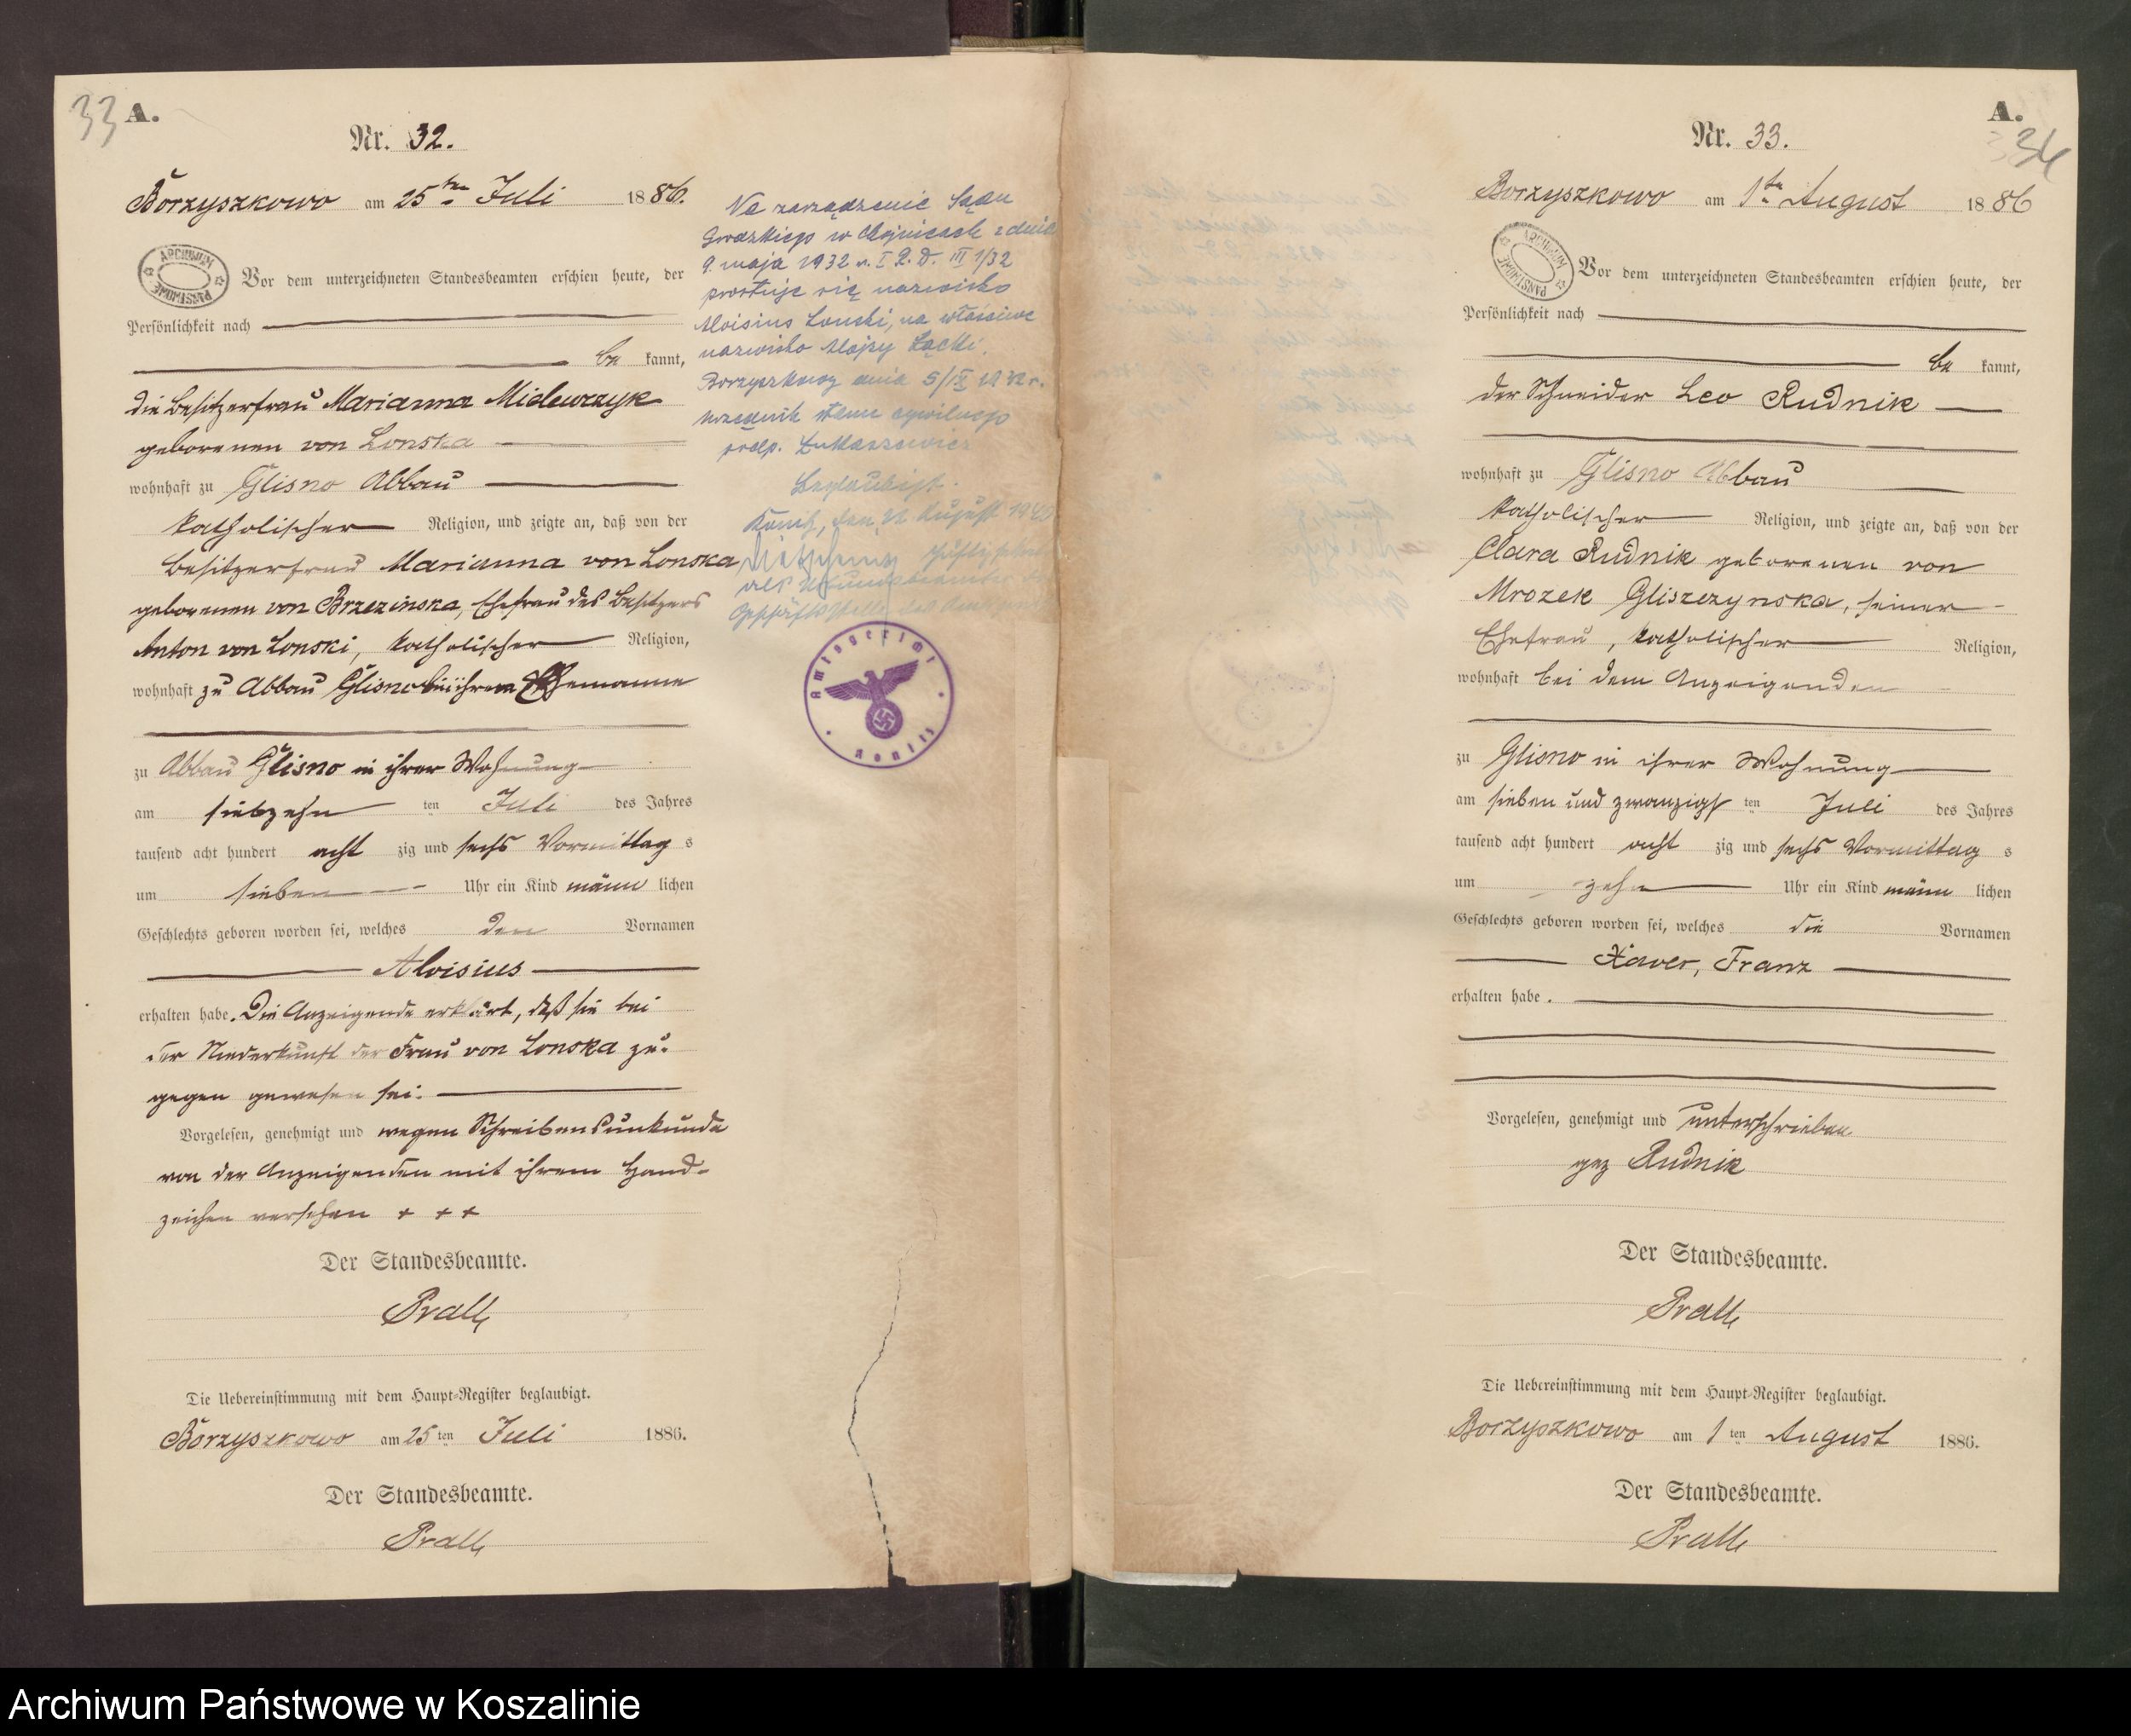 33
A.
Nr. 32.
Borzyszkowo am 25ten Juli 1886.
ARCHIWUM PAŃSTWOWE
Vor dem unterzeichneten Standesbeamten erschien heute, der
Persönlichkeit nach
be kannt,
die Besitzerfrau Marianna Mielewczyk
geborenen von Lonska
wohnhaft zu Glisno Abbau
katholischer Religion, und zeigte an, daß von der
Besitzerfrau Marianna von Lonska
geborenen von Brzezinska, Ehefrau des Besitzers
Anton von Lonski, katholischer Religion,
wohnhaft zu Abbau Glisno bei ihrem Ehemanne
zu Abbau Glisno in ihrer Wohnung
am siebzehn ten Juli des Jahres
tausend acht hundert acht zig und sechs Vormittag s
um sieben Uhr ein Kind männ lichen
Geschlechts geboren worden sei, welches den Vornamen
Aloisius
erhalten habe. Die Anzeigende erklärt, daß sie bei
der Niederkunft der Frau von Lonska zu-
gegen gewesen sei.
Vorgelesen, genehmigt und wegen Schreibensunkunde
von der Anzeigenden mit ihrem Hand-
zeichen versehen + + +
Der Standesbeamte.
Prall
Die Uebereinstimmung mit dem Haupt-Register beglaubigt.
Borzyszkowo am 25 ten Juli 1886.
Der Standesbeamte.
Prall
Na zarządzenie Sądu
Grodzkiego w Chojnicach z dnia
9. maja 1932 r. I 2. D. III 1/32
prostuje się nazwisko
Aloisius Lonski, na właściwe
nazwisko Alojzy Łącki.
Borzyszkowy dnia 5/IX 1932 r.
urzędnik stanu cywilnego
podp. Łukaszewicz
Beglaubigt.
Konitz, den 22 August 1940
als Urkundsbeamter der
Geschäftsstelle des Amtsgerichts
Amtsgericht Konitz
A.
34
Nr. 33.
Borzyszkowo am 1ten August 1886
ARCHIWUM PAŃSTWOWE
Vor dem unterzeichneten Standesbeamten erschien heute, der
Persönlichkeit nach
be kannt,
der Schneider Leo Rudnik
wohnhaft zu Glisno Abbau
katholischer Religion, und zeigte an, daß von der
Clara Rudnik geborenen von
Mrozek Gliszczynska, seiner
Ehefrau, katholischer Religion,
wohnhaft bei dem Anzeigenden
zu Glisno in ihrer Wohnung
am sieben und zwanzigs ten Juli des Jahres
tausend acht hundert acht zig und sechs Vormittag s
um zehn Uhr ein Kind männ lichen
Geschlechts geboren worden sei, welches die Vornamen
Xaver, Franz
erhalten habe.
Vorgelesen, genehmigt und unterschrieben
gez Rudnik
Der Standesbeamte.
Prall
Die Uebereinstimmung mit dem Haupt-Register beglaubigt.
Borzyszkowo am 1 ten August 1886.
Der Standesbeamte.
Prall
Archiwum Państwowe w Koszalinie